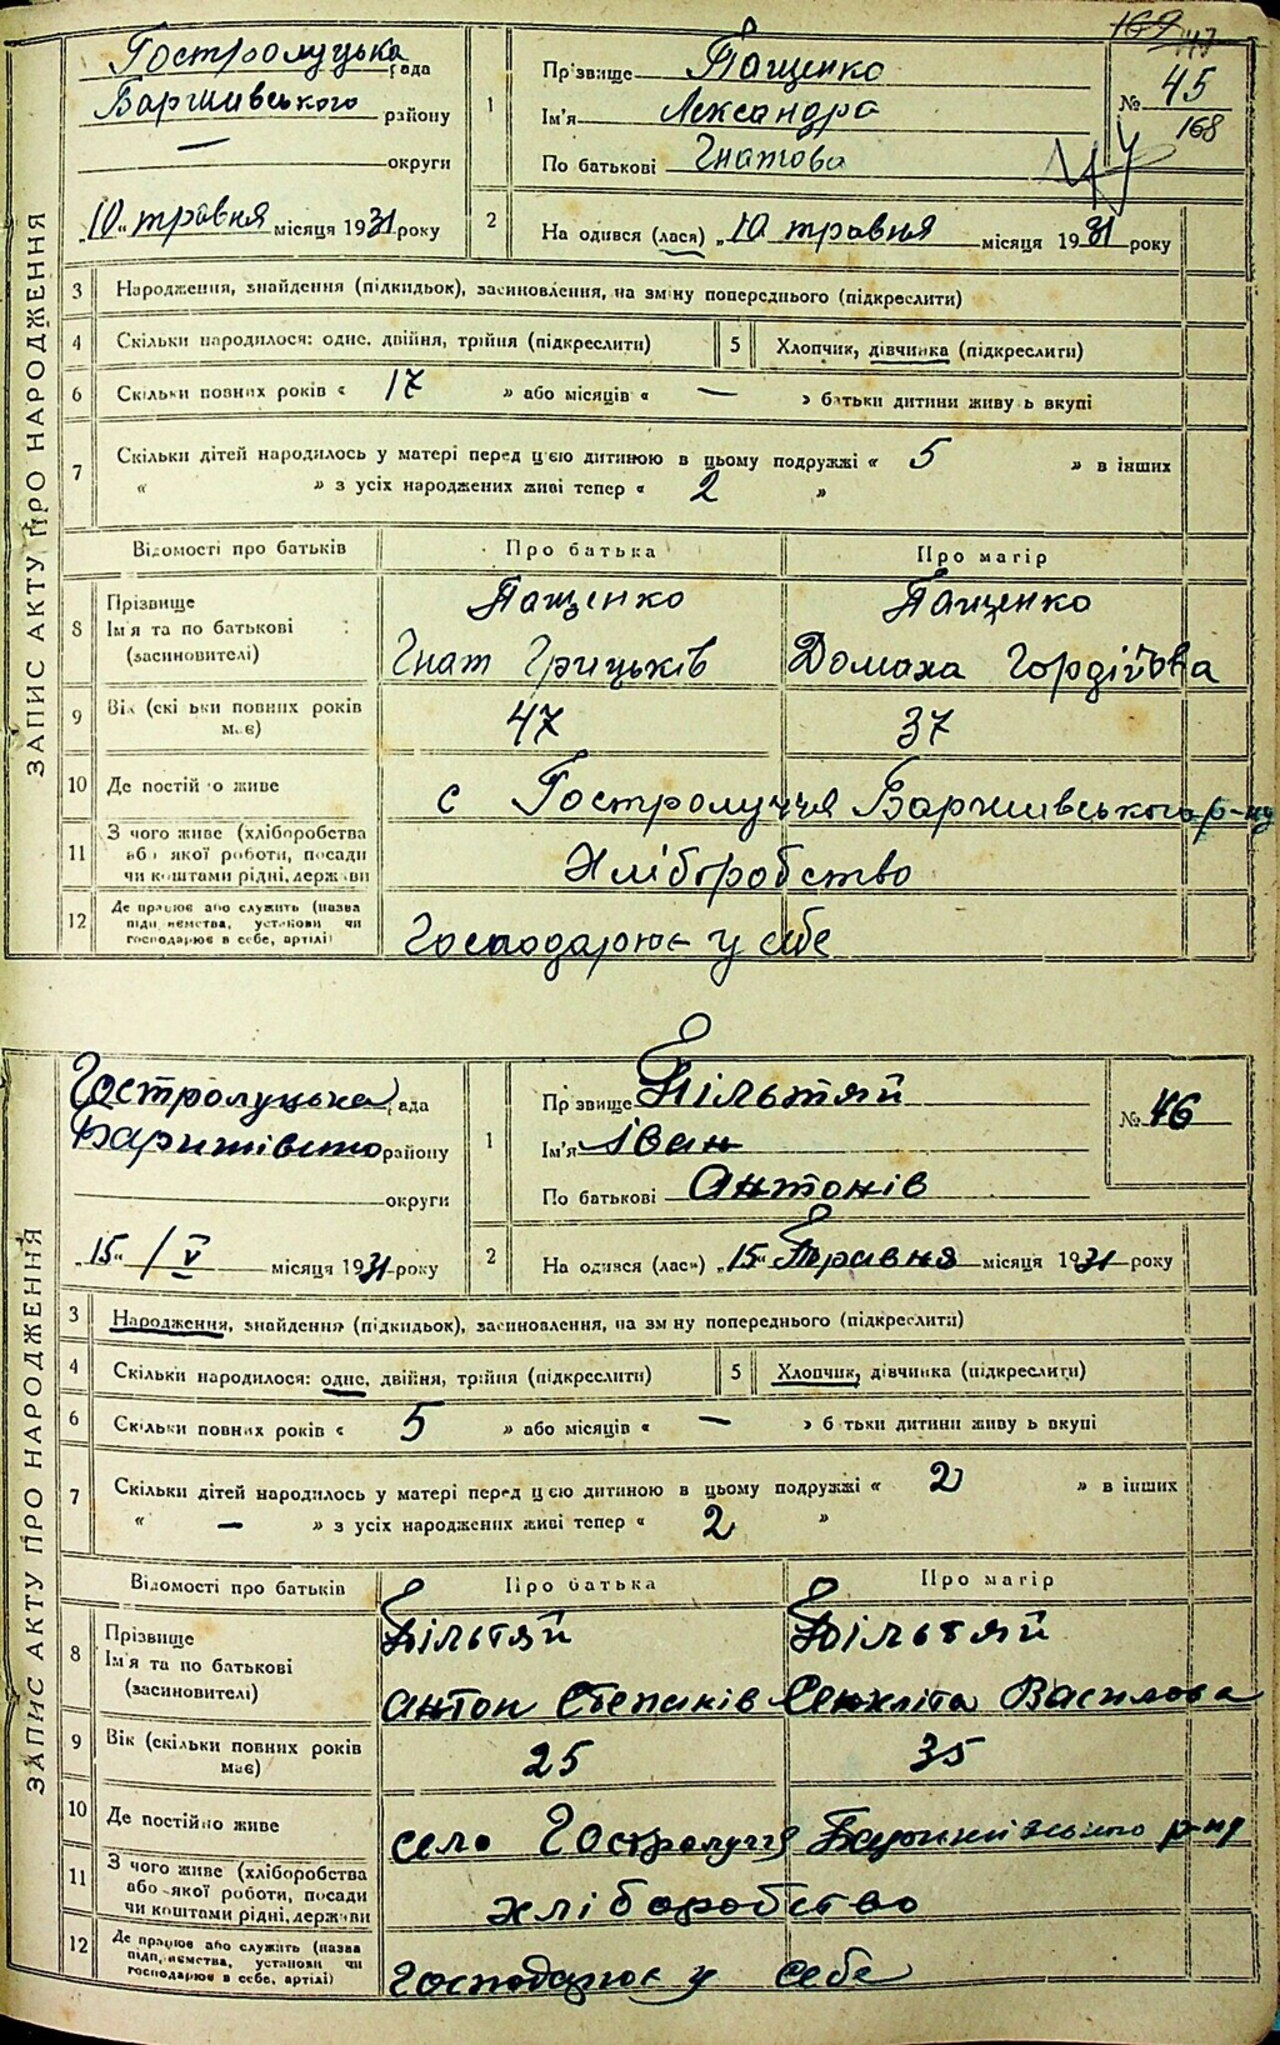 ЗАПИС АКТУ ПРО НАРОДЖЕННЯ
Гостролуцька рада
Баришивського району
— округи
„10“ травня місяця 1931 року
1
Прізвище Пащенко
Ім'я Лександра
По батькові Гнатова
169 47
№ 45
168
2
На одився (лася) „10 травня місяця 1931 року
3 Народження, знайдення (підкидьок), засиновлення, на зміну попереднього (підкреслити)
4 Скільки народилося: одне, двійня, трійня (підкреслити) 5 Хлопчик, дівчинка (підкреслити)
6 Скільки повних років « 17 » або місяців « — » батьки дитини живуть вкупі
7 Скільки дітей народилось у матері перед цією дитиною в цьому подружжі « 5 » в інших
« » з усіх народжених живі тепер « 2 »
Відомості про батьків Про батька Про матір
8 Прізвище Пащенко Пащенко
Ім'я та по батькові :
(засиновителі) Гнат Грицьків Домаха Гордійова
9 Вік (скільки повних років
має) 47 37
10 Де постійно живе с Гостролуччя Баришивського р-ну
11 З чого живе (хліборобства
або якої роботи, посади
чи коштами рідні, держави Хліборобство
12 Де працює або служить (назва
підприємства, установи чи
господарює в себе, артілі) Господарює у себе
ЗАПИС АКТУ ПРО НАРОДЖЕННЯ
Гостролуцька рада
району
округи
„15“ / V місяця 1931 року
1
Прізвище Більтяй
Ім'я Іван
По батькові Антонів
№ 46
2
На одився (лася) „15“ Травня місяця 1931 року
3 Народження, знайдення (підкидьок), засиновлення, на зміну попереднього (підкреслити)
4 Скільки народилося: одне, двійня, трійня (підкреслити) 5 Хлопчик, дівчинка (підкреслити)
6 Скільки повних років « 5 » або місяців « — » батьки дитини живуть вкупі
7 Скільки дітей народилось у матері перед цією дитиною в цьому подружжі « 2 » в інших
« — » з усіх народжених живі тепер « 2 »
Відомості про батьків Про батька Про матір
8 Прізвище Більтяй Більтяй
Ім'я та по батькові
(засиновителі) Антон Степанів Василова
9 Вік (скільки повних років
має) 25 35
10 Де постійно живе село Гостролуччя р-ну
11 З чого живе (хліборобства
або якої роботи, посади
чи коштами рідні, держави хліборобство
12 Де працює або служить (назва
підприємства, установи чи
господарює в себе, артілі) Господарює у себе